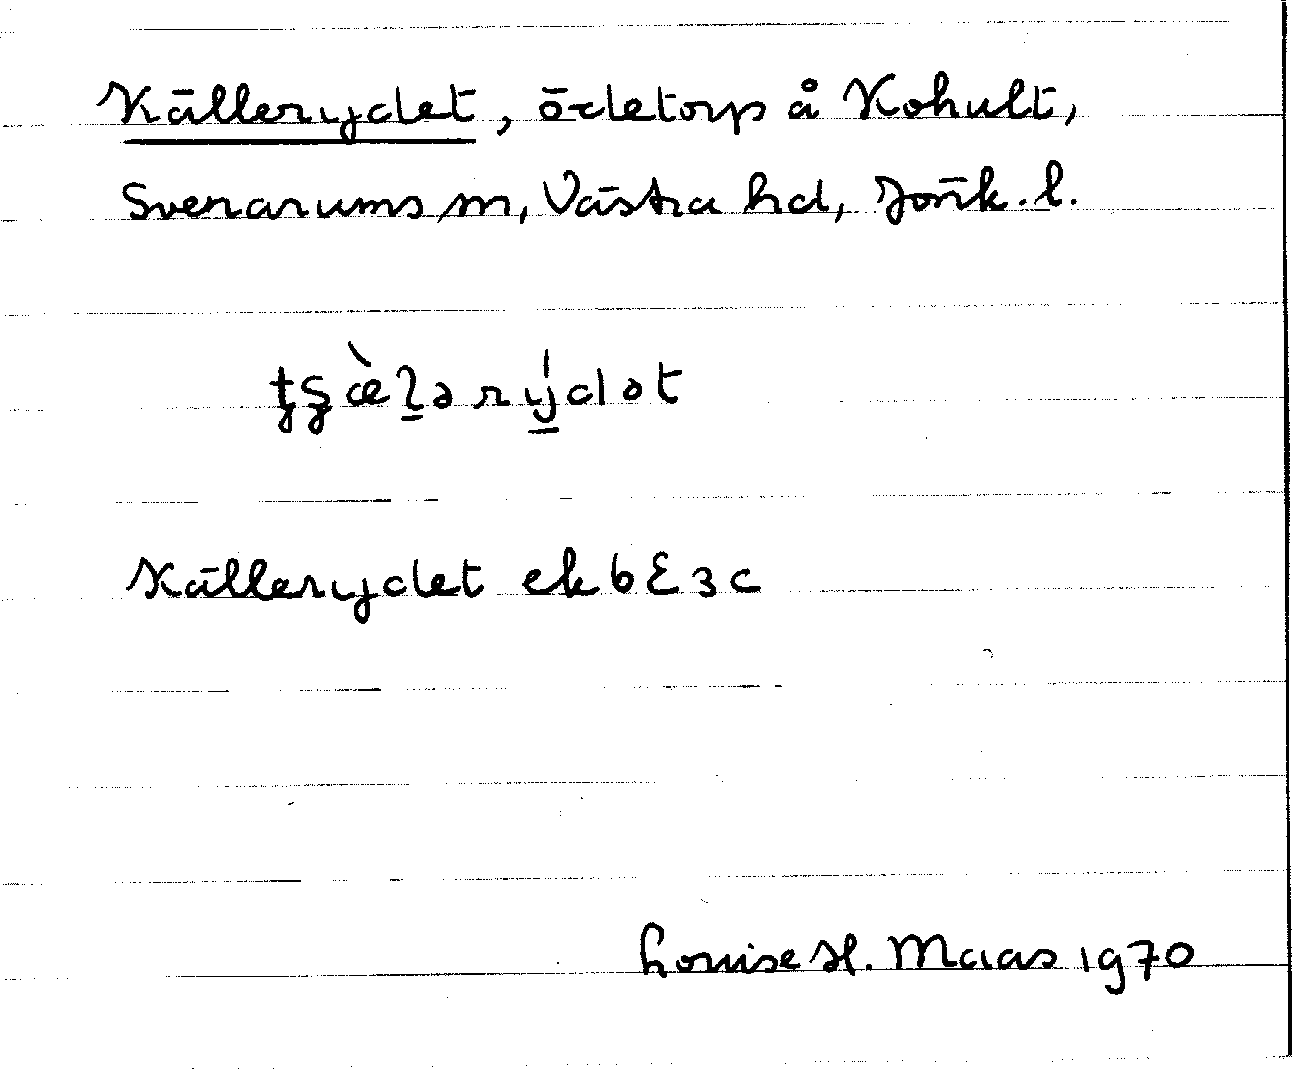 Källerydet, ödetorp å Kohult,
Svenarums sn, Västra hd, Jönk. l.
Källerydet ek 6 E 3 c
Louise H. Maas 1970